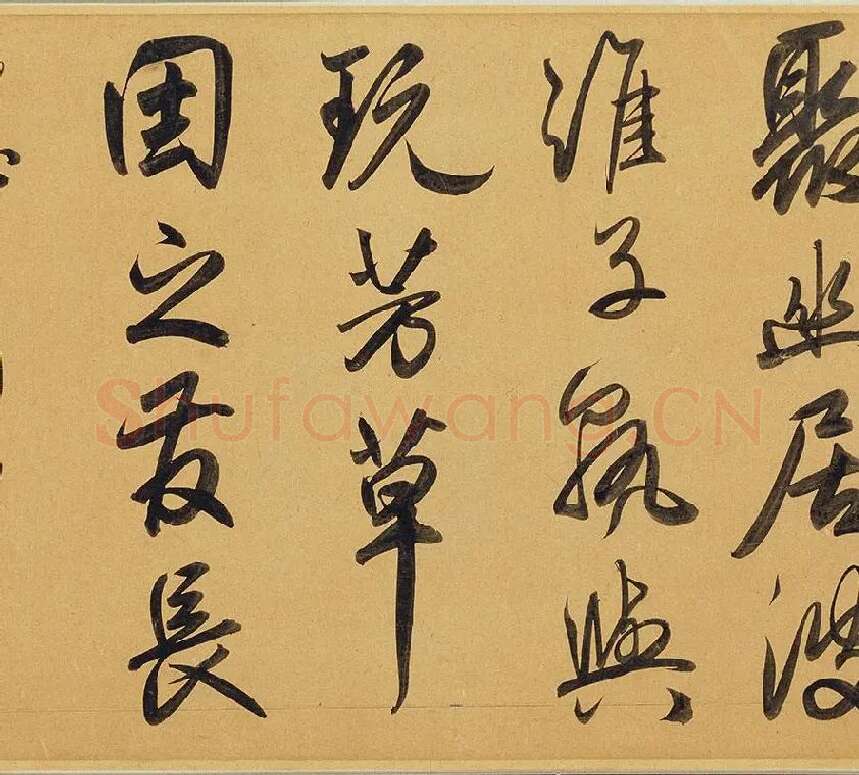 聚幽居
淮子孰與
玩芳草
因之發長
Shufawang.CN